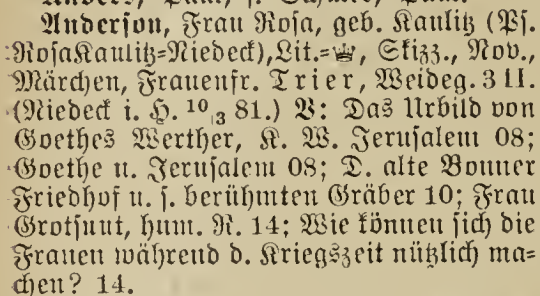 Anderson, Frau Rosa, geb. Kaulitz (Ps.
Rosa Kaulitz=Niedeck), Lit.=♕, Skizz., Nov.,
Märchen, Frauenfr. Trier, Weideg. 3 II.
(Niedeck i. H. 10/3 81.) V: Das Urbild von
Goethes Werther, K. W. Jerusalem 08;
Goethe u. Jerusalem 08; D. alte Bonner
Friedhof u. s. berühmten Gräber 10; Frau
Grotjuut, hum. R. 14; Wie können sich die
Frauen während d. Kriegszeit nützlich ma=
chen? 14.